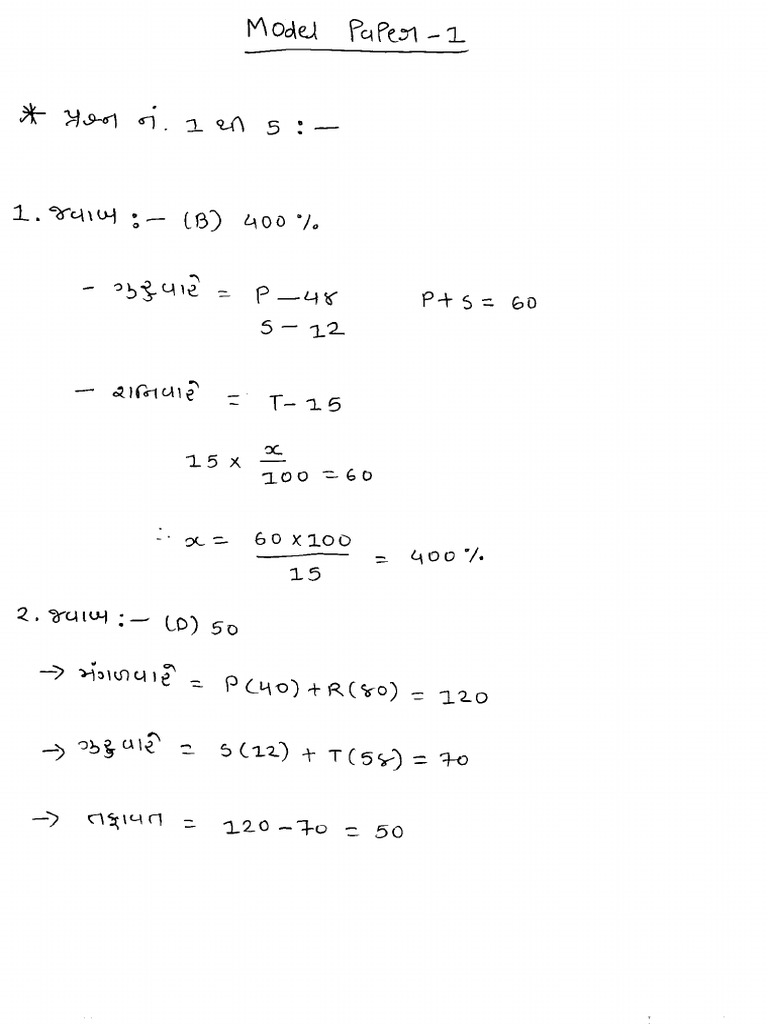 Model Paper-1
* પ્રશ્ન નં. 1 થી 5 :-
1. જવાબ :- (B) 400 %
- ગુરુવારે = P - 48 P + S = 60
S - 12
- શનિવારે = T - 15
15 × x/100 = 60
∴ x = 60 × 100/15 = 400 %
2. જવાબ :- (D) 50
→ મંગળવારે = P(40) + R(80) = 120
→ ગુરુવારે = S(12) + T(58) = 70
→ તફાવત = 120 - 70 = 50